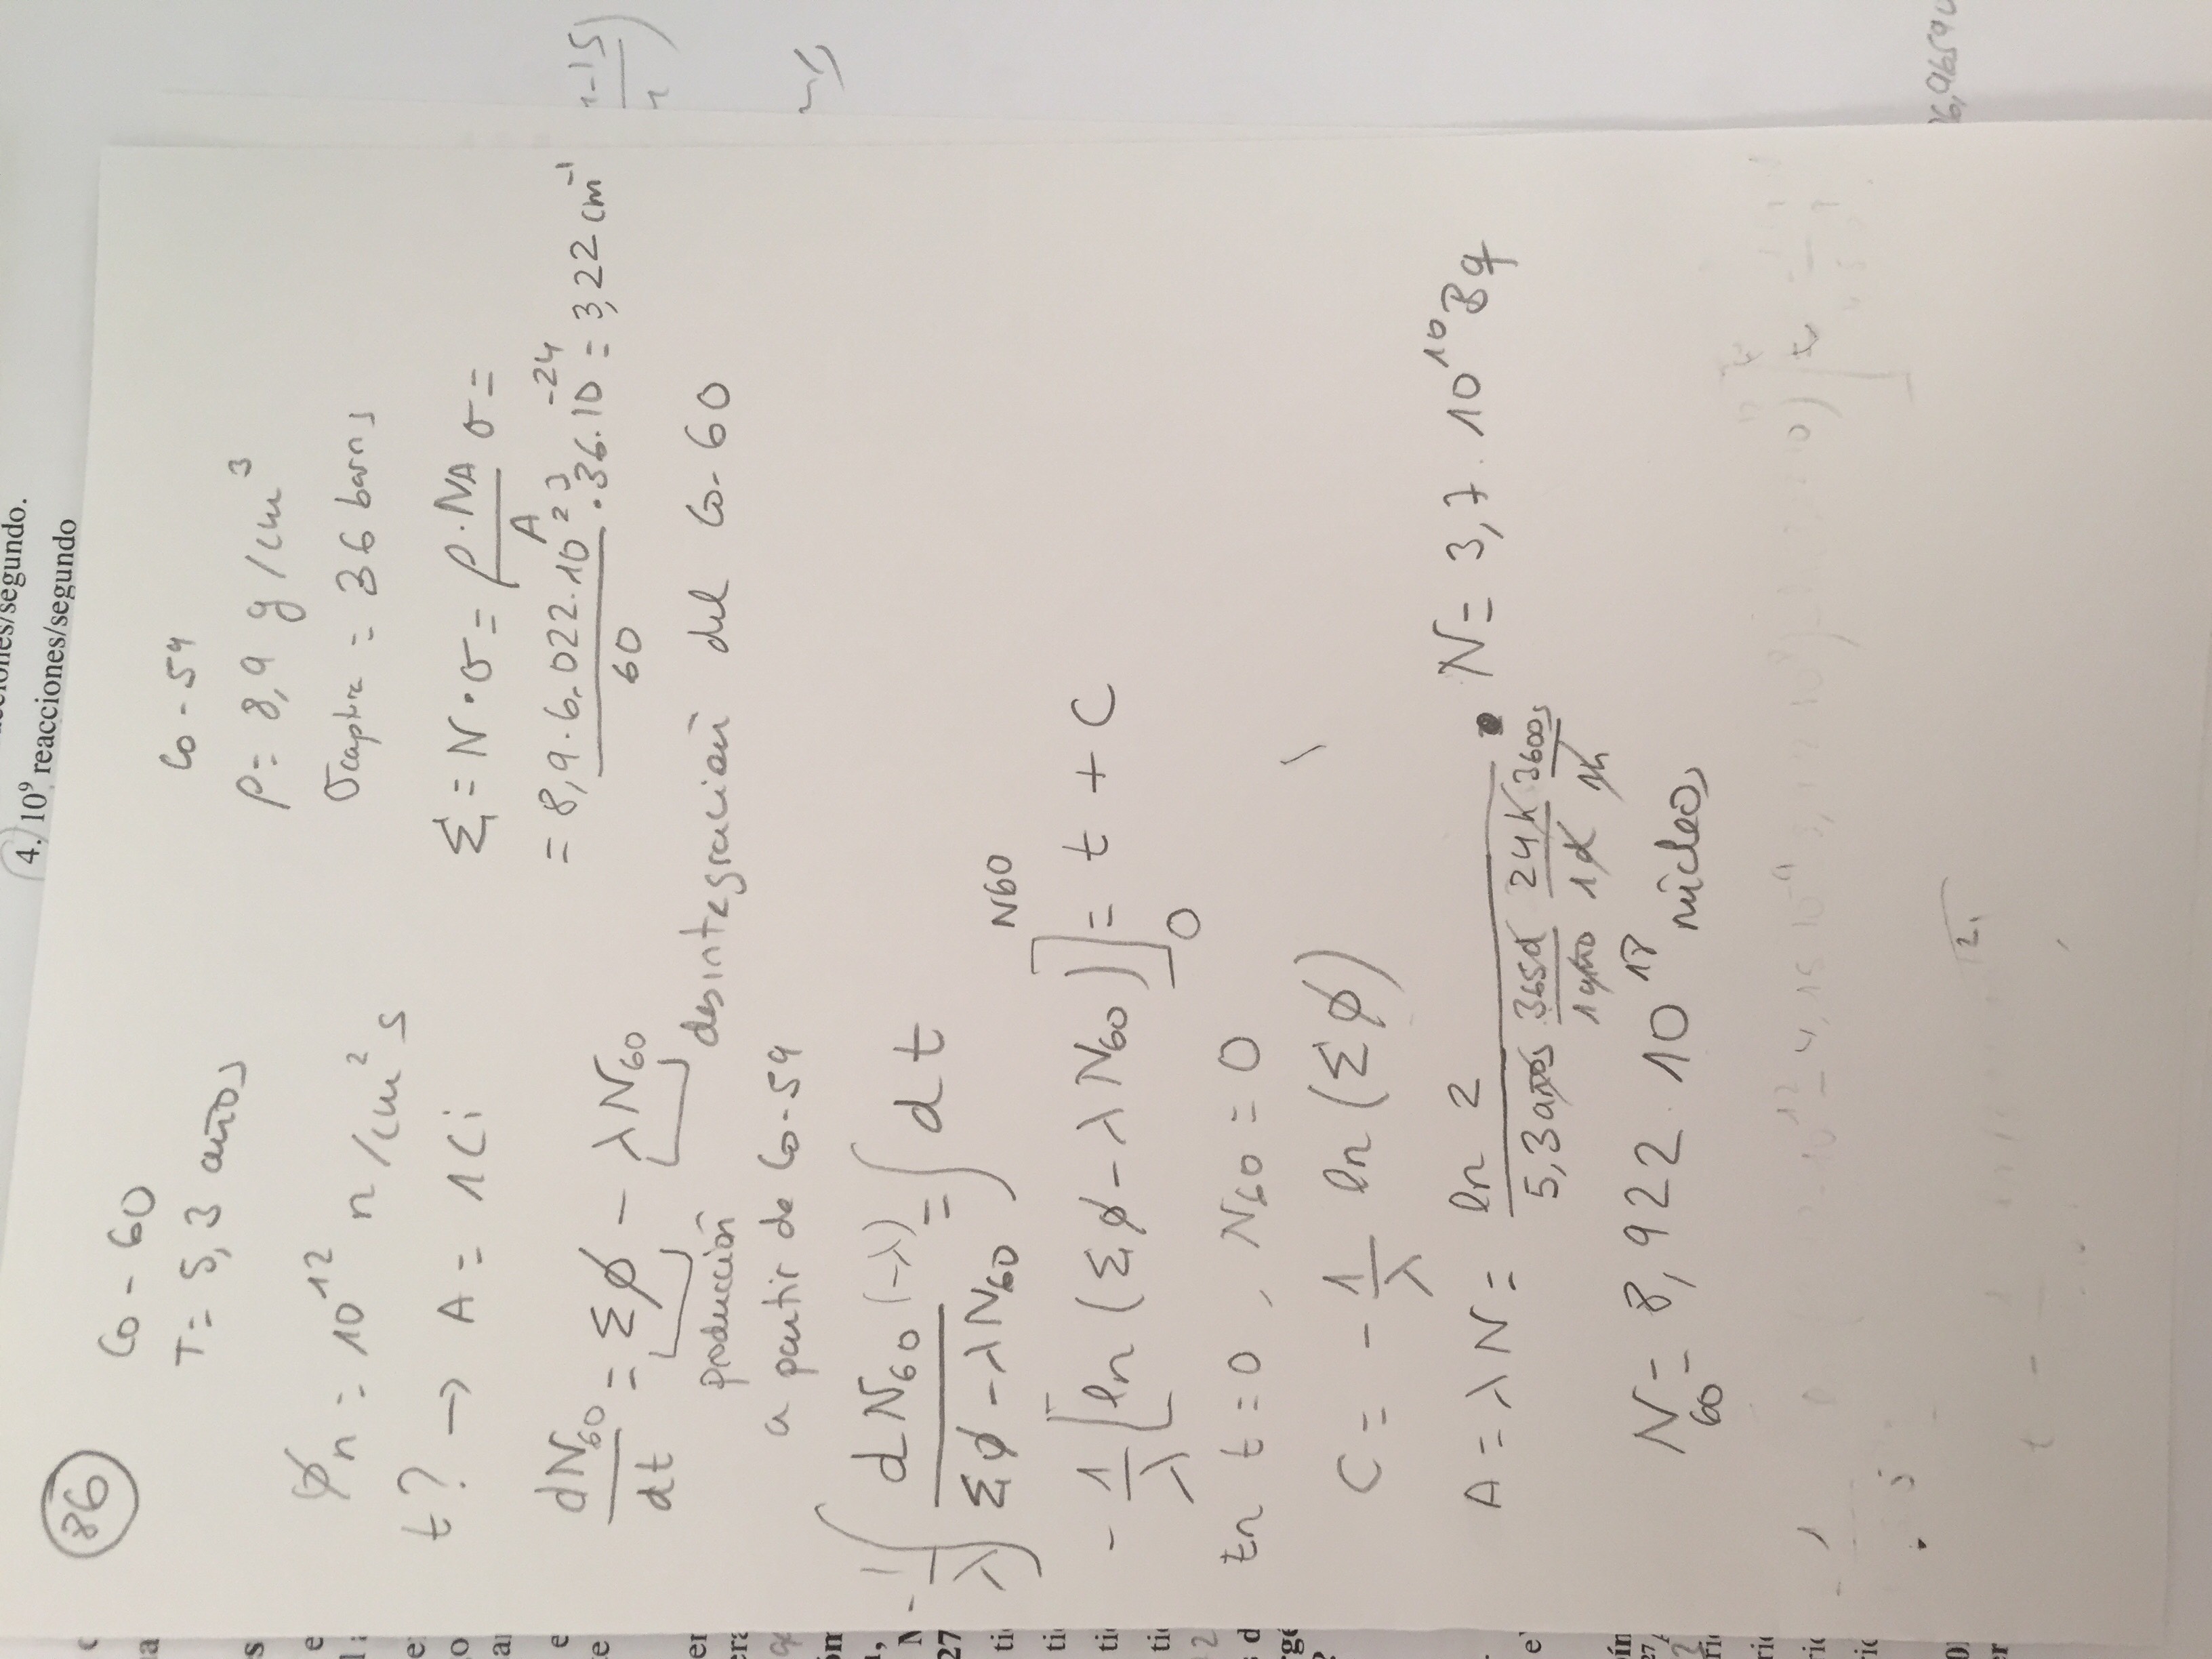 4. 10⁹ reacciones/segundo
86
Co-60
T = 5,3 años
ϕn = 10¹² n/cm² s
t? → A = 1Ci
Co-59
ρ = 8,9 g/cm³
σcaptura = 36 barns
Σ = N·σ = ρ·NA/A σ =
= 8,9·6,022·10²³/60 · 36·10⁻²⁴ = 3,22 cm⁻¹
dN60/dt = Σϕ - λN60
producción a partir de Co-59
desintegración del Co-60
-1/λ ∫ dN60(-λ)/(Σϕ - λN60) = ∫ dt
-1/λ [ln(Σϕ - λN60)]₀^N60 = t + C
En t=0, N60=0
C = -1/λ ln(Σϕ)
A = λN = ln 2/(5,3 años · 365d/1año · 24h/1d · 3600s/1h) · N = 3,7·10¹⁰ Bq
N60 = 8,922·10¹⁸ núcleos